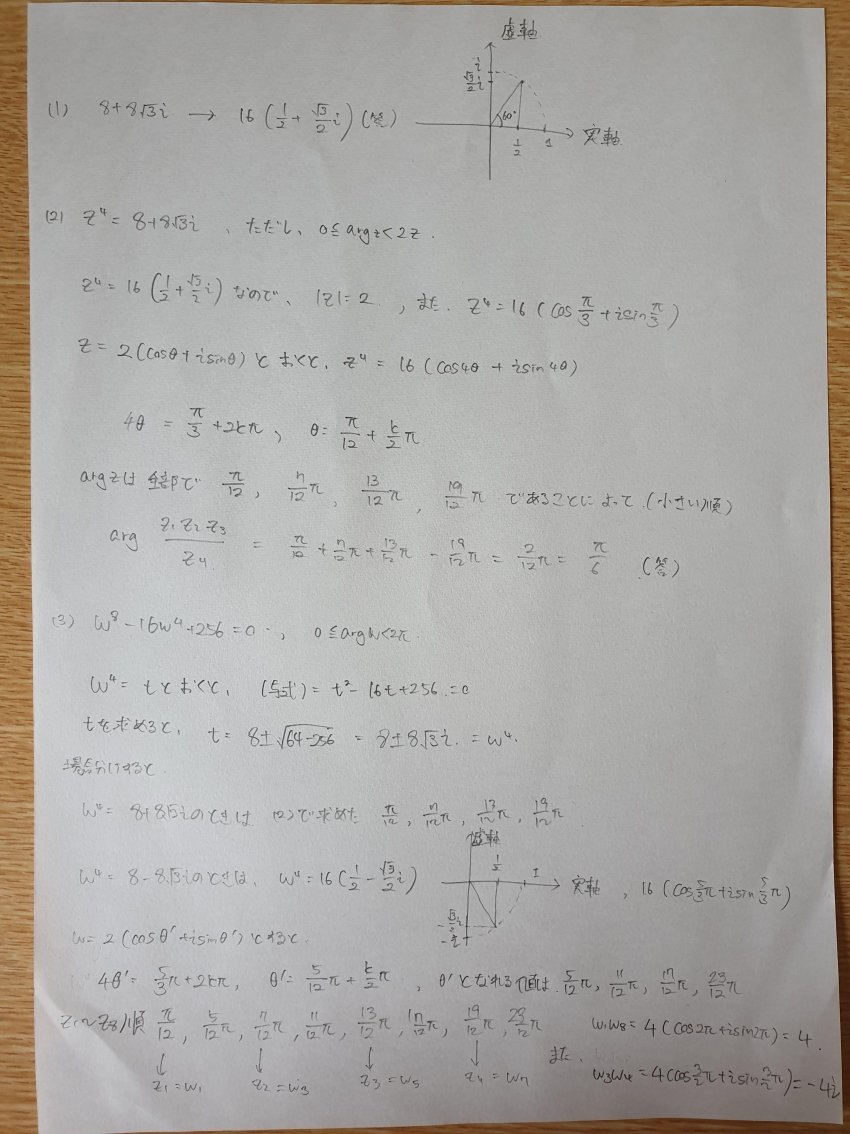 虚軸
i
√3/2 i
60°
1/2
1
実軸
(1) 8+8√3i → 16(1/2+√3/2 i) (答)
(2) z⁴=8+8√3i 、ただし、0≦argz<2z.
z⁴=16(1/2+√3/2 i)なので、|z|=2 ,また. z⁴=16(cosπ/3+isinπ/3)
z=2(cosθ+isinθ)とおくと, z⁴=16(cos4θ+isin4θ)
4θ=π/3+2kπ, θ=π/12+k/2 π
argzは全部で π/12, 7/12 π, 13/12 π, 19/12 π であることによって.(小さい順)
arg z₁z₂z₃/z₄ = π/12+7/12 π+13/12 π-19/12 π=2/12 π=π/6 (答)
(3) w⁸-16w⁴+256=0 , 0≦argw<2π.
w⁴=tとおくと, (与式)=t²-16t+256=0
tを求めると, t=8±√64-256=8±8√3i.=w⁴.
場合分けすると
w⁴=8+8√3iのときは (2)で求めた π/12, 7/12 π, 13/12 π, 19/12 π
虚軸
1/2
1
実軸
-√3/2 i
-i
w⁴=8-8√3iのときは, w⁴=16(1/2-√3/2 i) , 16(cos5/3 π+isin5/3 π)
w=2(cosθ'+isinθ')とすると.
4θ'=5/3 π+2kπ, θ'=5/12 π+k/2 π , θ'となれる値は, 5/12 π, 11/12 π, 17/12 π, 23/12 π
z₁~z₈順 π/12, 5/12 π, 7/12 π, 11/12 π, 13/12 π, 17/12 π, 19/12 π, 23/12 π
w₁w₈=4(cos2π+isin2π)=4.
↓ ↓ ↓ ↓
z₁=w₁ z₂=w₃ z₃=w₅ z₄=w₇
また、 w₃w₄=4(cos3/2 π+isin3/2 π)=-4i